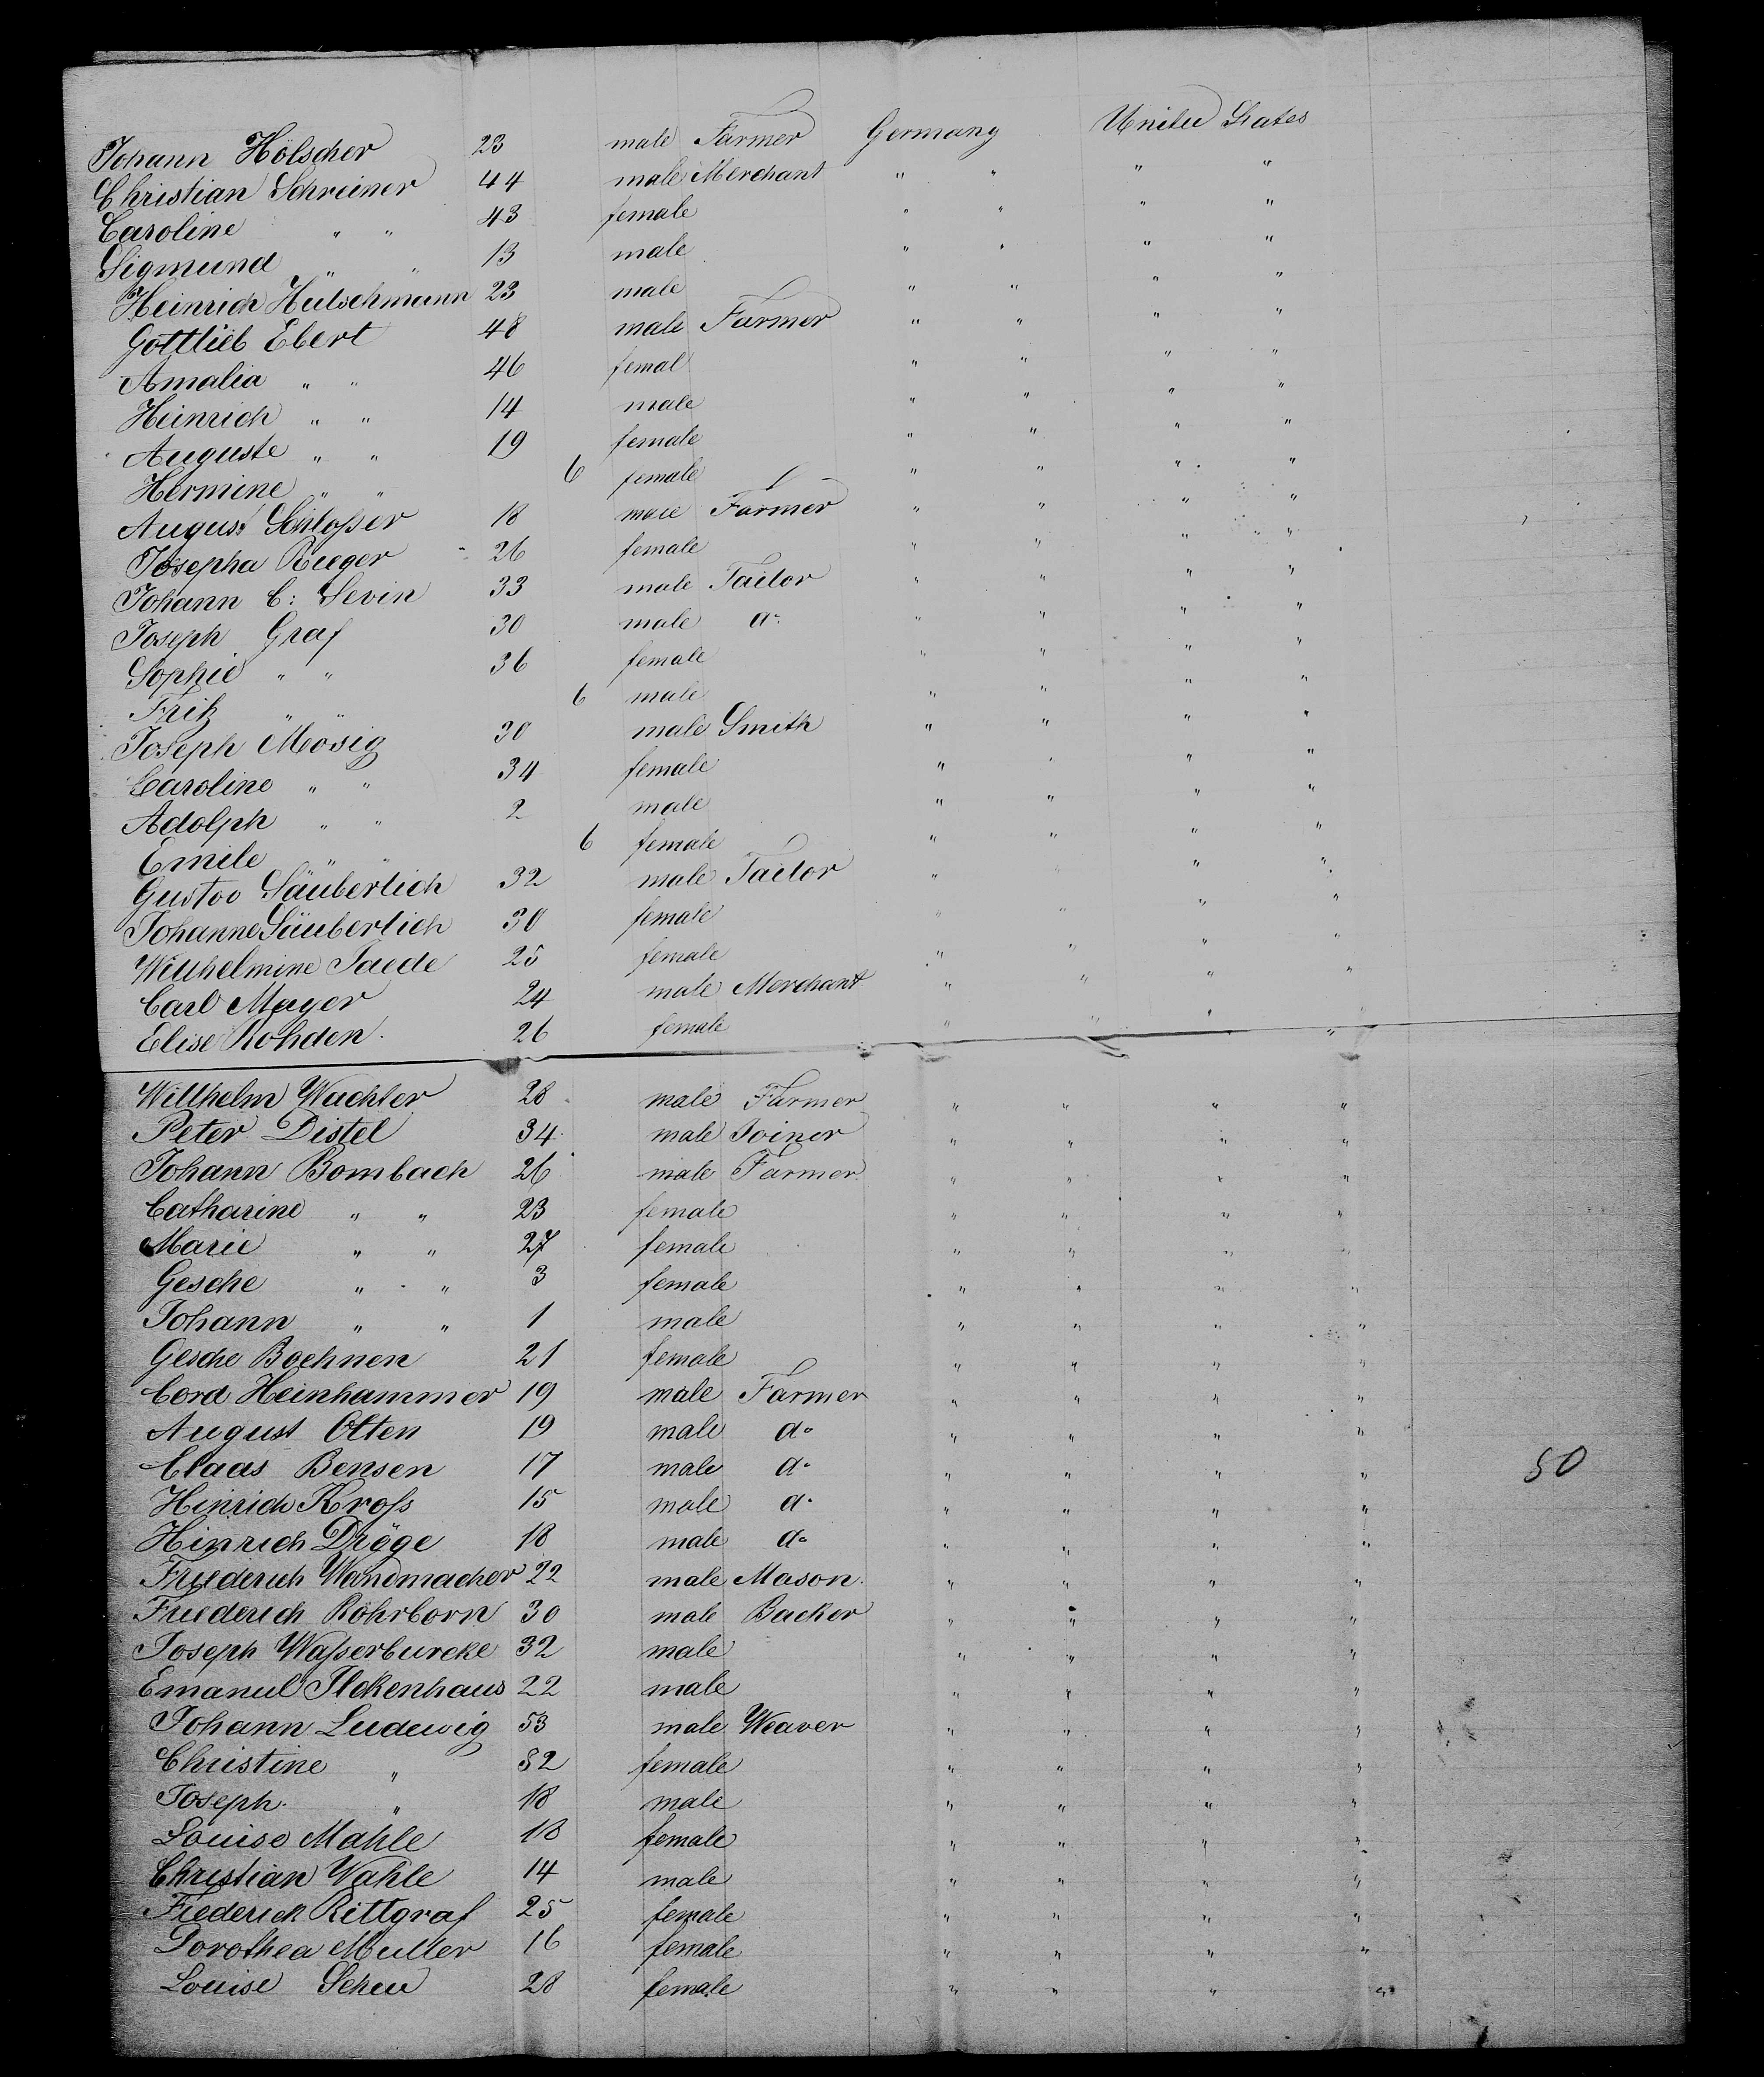 Johann Hölscher 23 male Farmer Germany United States
Christian Schreiner 44 male Merchant " " " "
Caroline " " 43 female " " " "
Sigmund " " 13 male " " " "
Heinrich Hutschmann 23 male " " " "
Gottlieb Ebert 48 male Farmer " " " "
Amalia " " 46 femal " " " "
Heinrich " " 14 male " " " "
Auguste " " 19 female " " " "
Hermine " " 6 female " " " "
August Schloßer 18 male Farmer " " " "
Josepha Rueger 26 female " " " "
Johann C: Sevin 33 male Tailor " " " "
Joseph Graf 30 male do " " " "
Sophie " " 36 female " " " "
Fritz " " 6 male " " " "
Joseph Mosig 30 male Smith " " " "
Caroline " " 34 female " " " "
Adolph " " 2 male " " " "
Emile " " 6 female " " " "
Gustav Säuberlich 32 male Tailor " " " "
Johanne Säuberlich 30 female " " " "
Willhelmine Taede 25 female " " " "
Carl Mayer 24 male Merchant " " " "
Elise Rohden 26 female " " " "
Willhelm Wachter 28 male Farmer " " " "
Peter Distel 34 male Joiner " " " "
Johann Bombach 26 male Farmer " " " "
Catharine " " 23 female " " " "
Marie " " 27 female " " " "
Gesche " " 3 female " " " "
Johann " " 1 male " " " "
Gesche Boehnen 21 female " " " "
Cord Heinhammer 19 male Farmer " " " "
August Otten 19 male do " " " "
Claas Bensen 17 male do " " " " 50
Hinrich Kroß 15 male do " " " "
Hinrich Dröge 18 male do " " " "
Friederich Wandmacher 22 male Mason " " " "
Friederich Rohrborn 30 male Backer " " " "
Joseph Waßerburcke 32 male " " " "
Emanuel Ilckenhaus 22 male " " " "
Johann Ludewig 53 male Weaver " " " "
Christine " 52 female " " " "
Joseph " 18 male " " " "
Louise Mahle 18 female " " " "
Christian Wahle 14 male " " " "
Friederich Rittgraf 25 female " " " "
Dorothea Muller 16 female " " " "
Louise Scheu 28 female " " " "